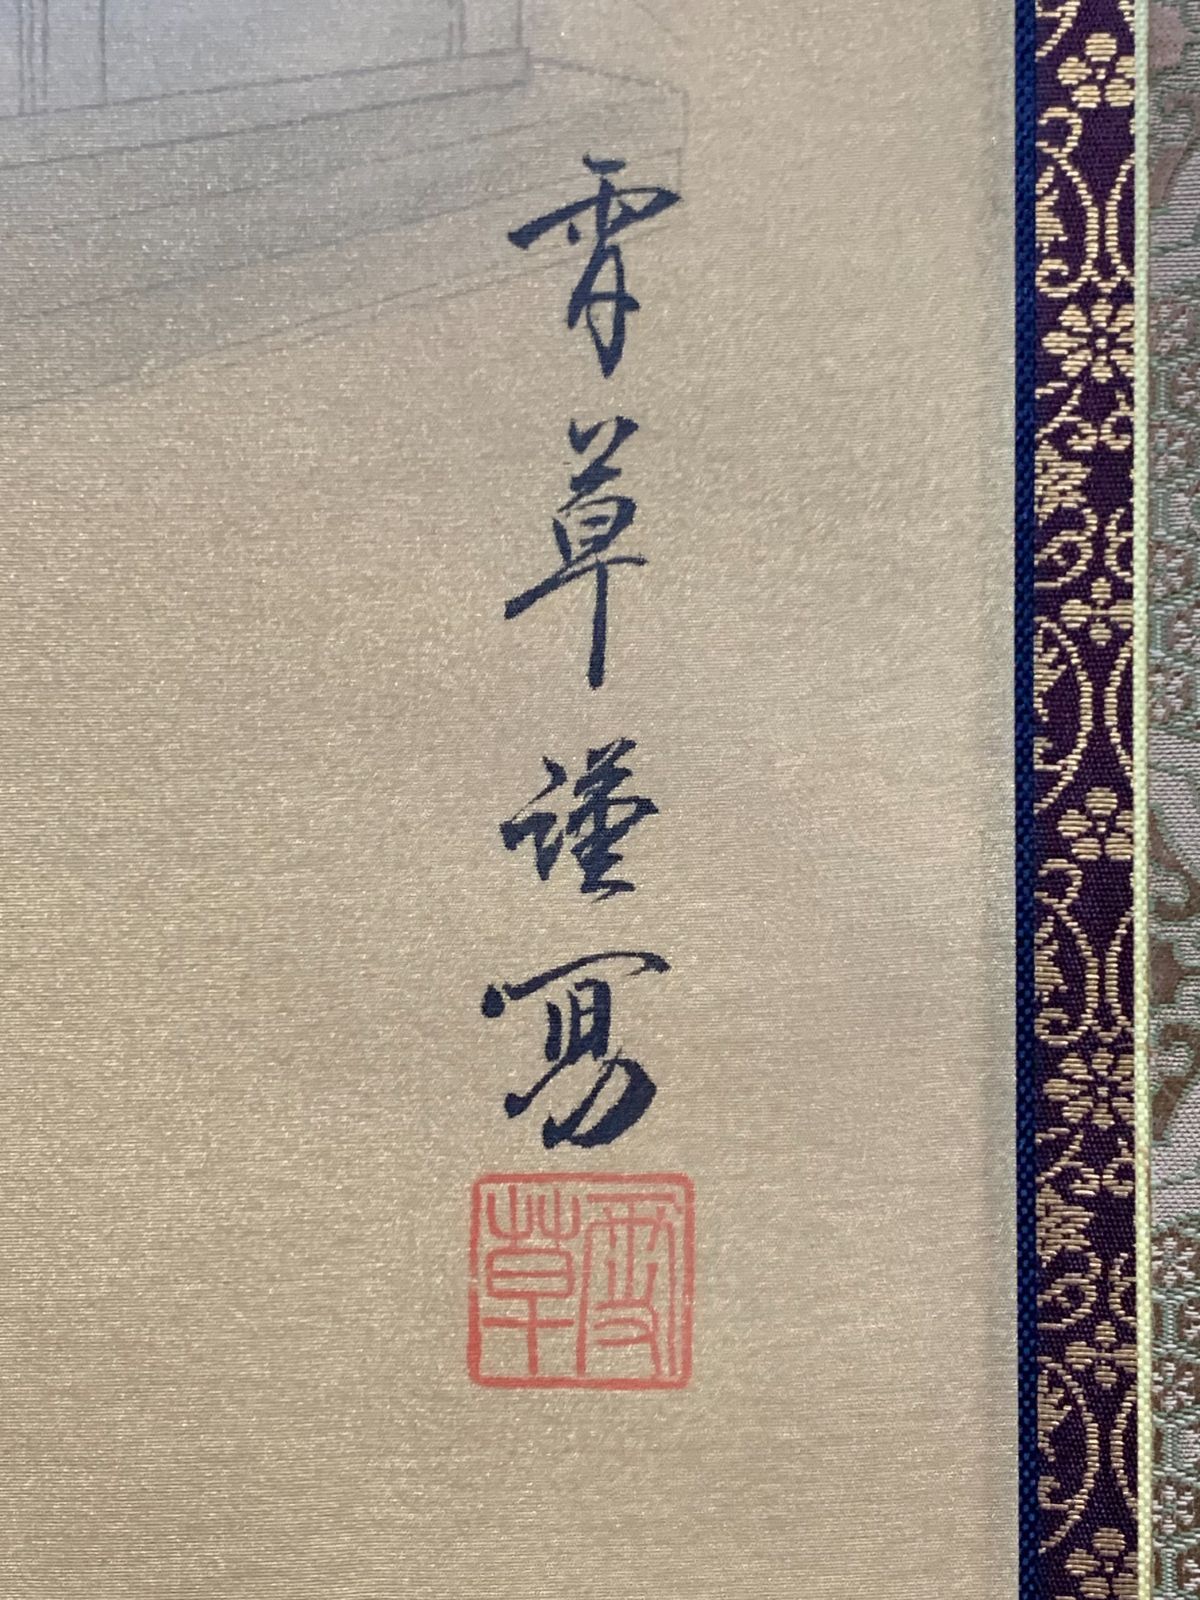 雪草謹寫
雪草